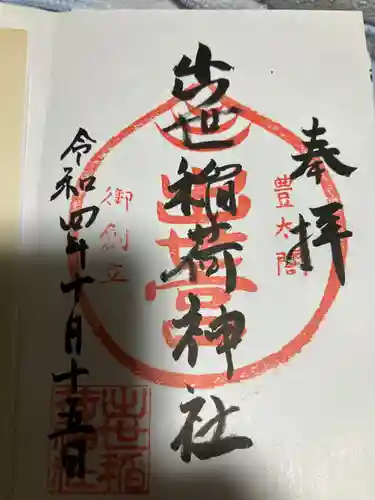 奉拝
豊太閤
出世稲荷神社
御創立
令和四年十月十五日
出世稲荷神社